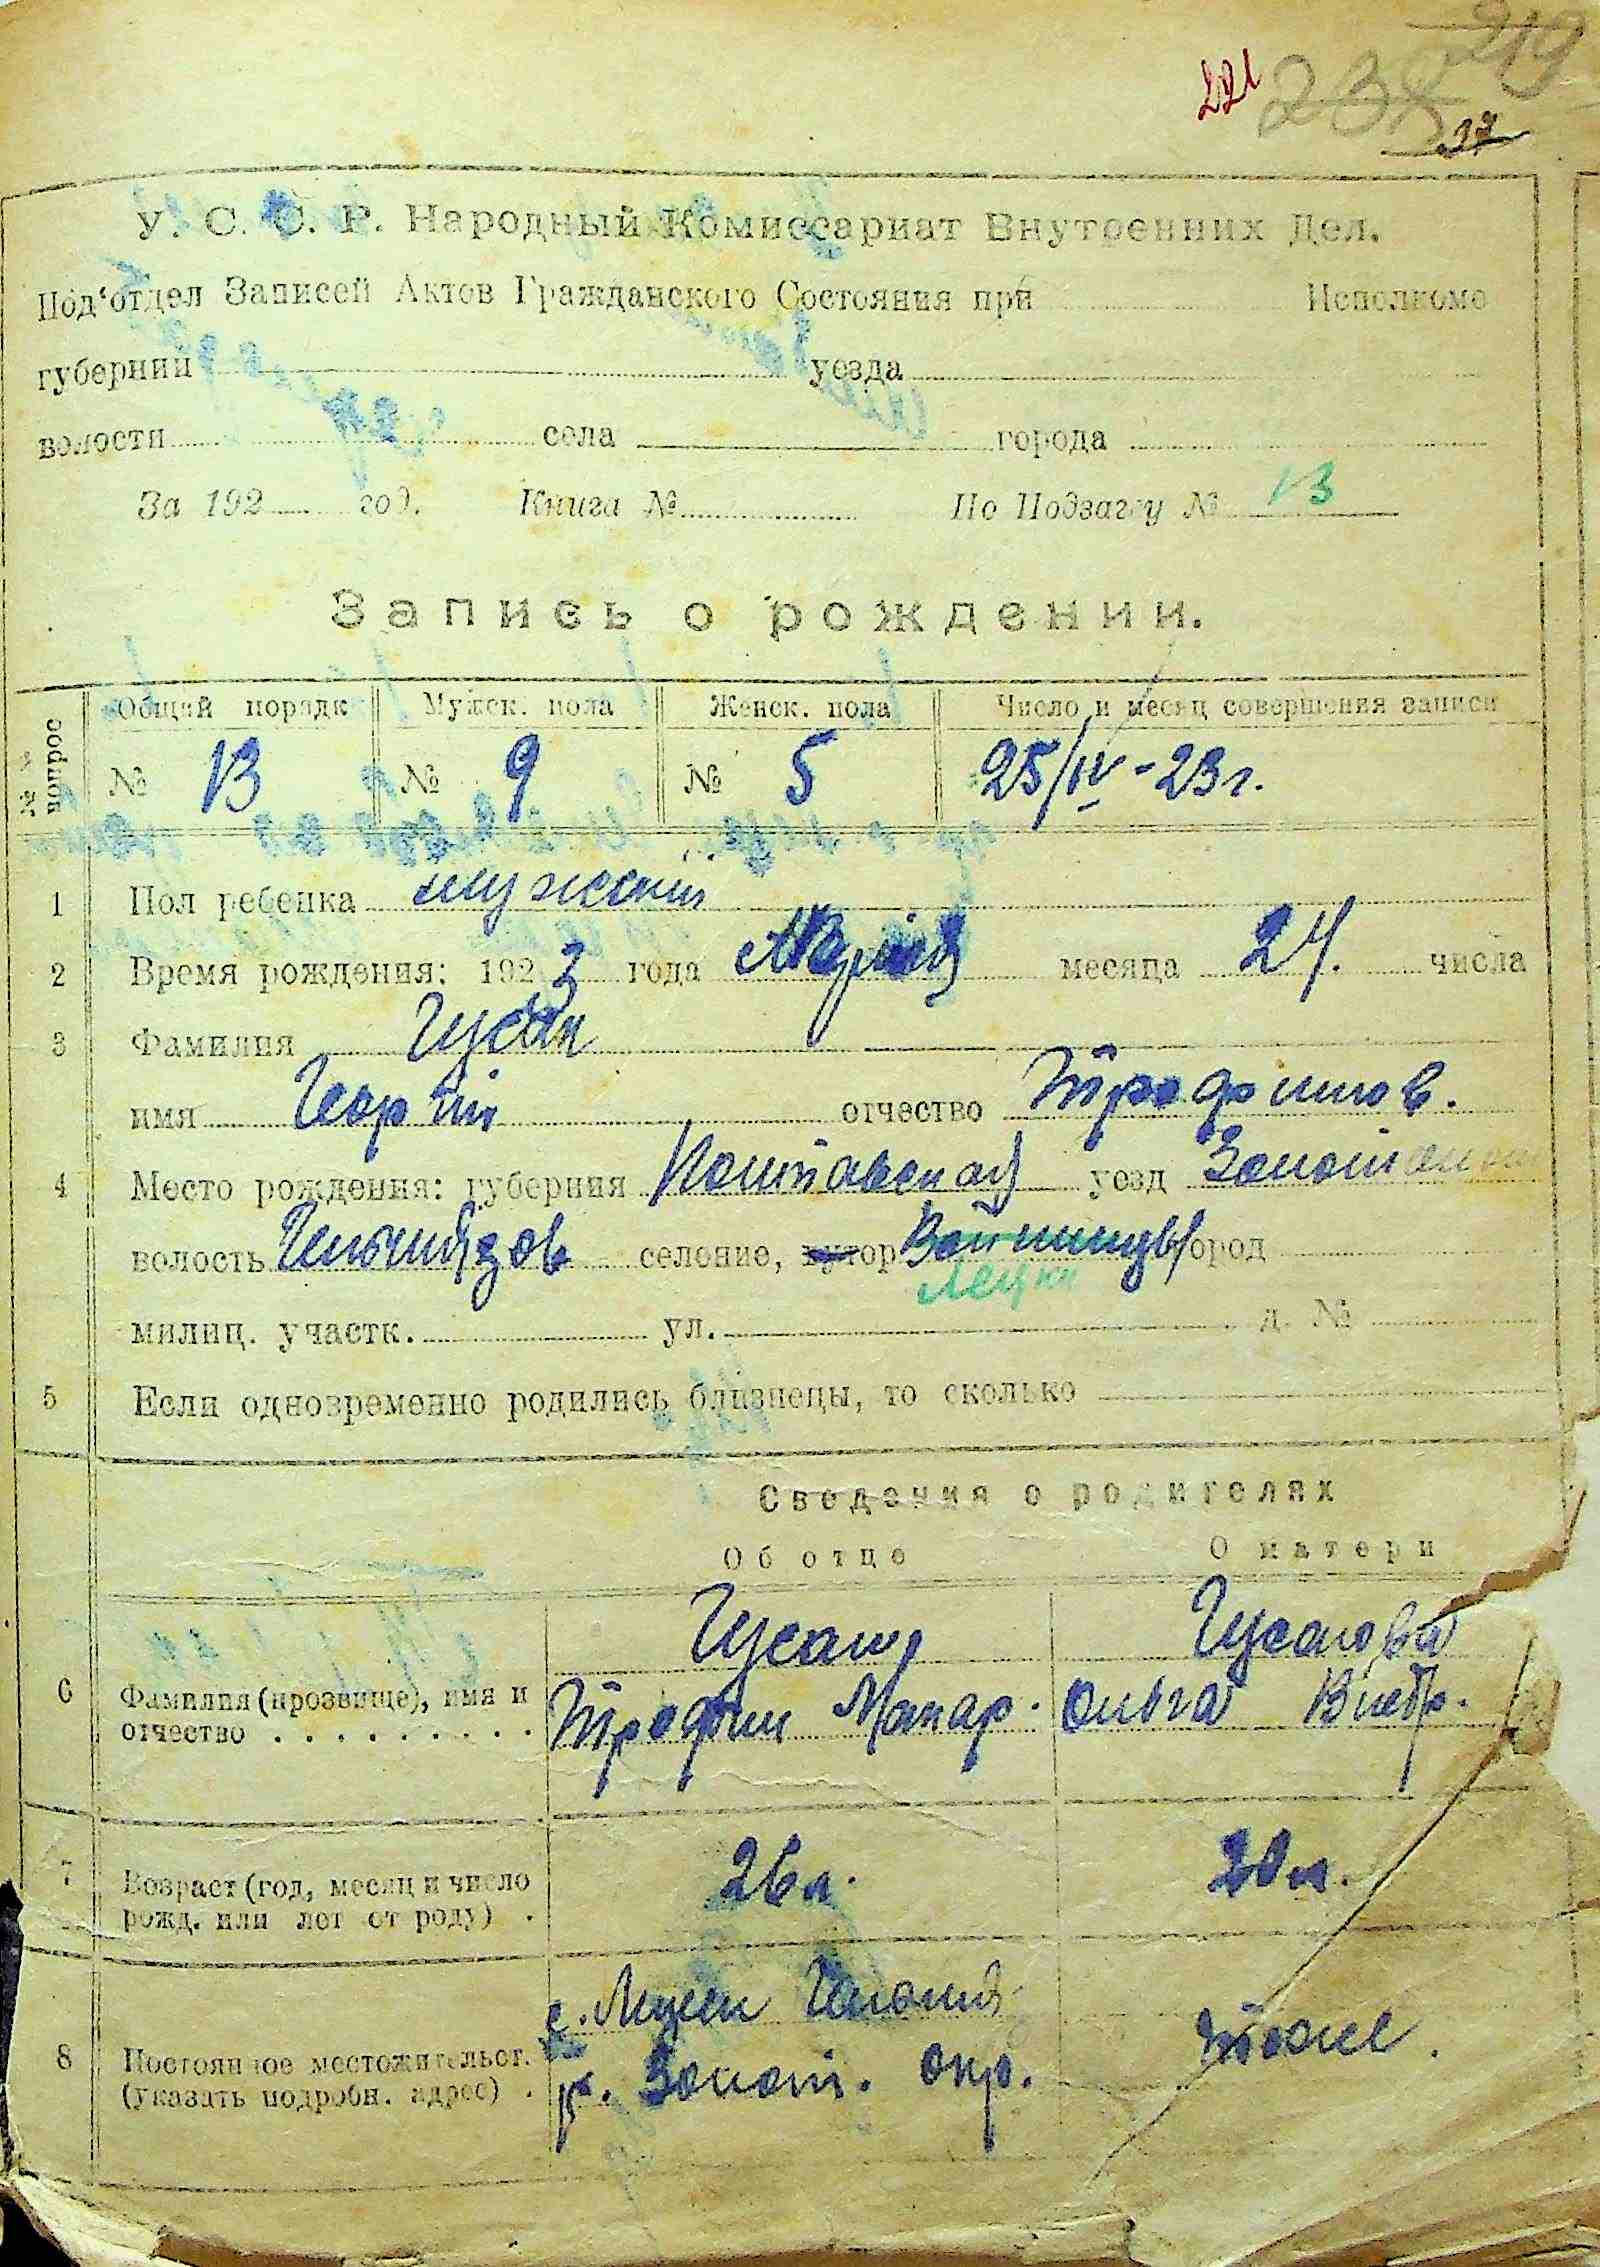 221
37
У. С. С. Р. Народный Комиссариат Внутренних Дел.
Под'отдел Записей Актов Гражданского Состояния при Исполкоме
губернии уезда
волости села города
За 192 год. Книга № По Подзагсу № 13
Запись о рождении.
№№ вопрос Общий порядк Мужск. пола Женск. пола Число и месяц совершения записи
№ 13 № 9 № 5 25/IV-23г.
1 Пол ребенка мужский
2 Время рождения: 1923 года месяца 24. числа
3 Фамилия Гусак
имя Георгий отчество Трофимов.
4 Место рождения: губерния Полтавская уезд Золотонош
волость селение, хутор Войтинцы город
Лецки
милиц. участк. ул. д. №
5 Если одновременно родились близнецы, то сколько
Сведения о родителях
Об отце О матери
Гусак Гусакова
6 Фамилия (прозвище), имя и отчество Трофим Макар. Ольга
7 Возраст (год, месяц и число рожд. или лет от роду) 26 л. 20 л.
8 Постоянное местожительст. (указать подробн. адрес) с. Лецки
р. Золот. окр. тоже.